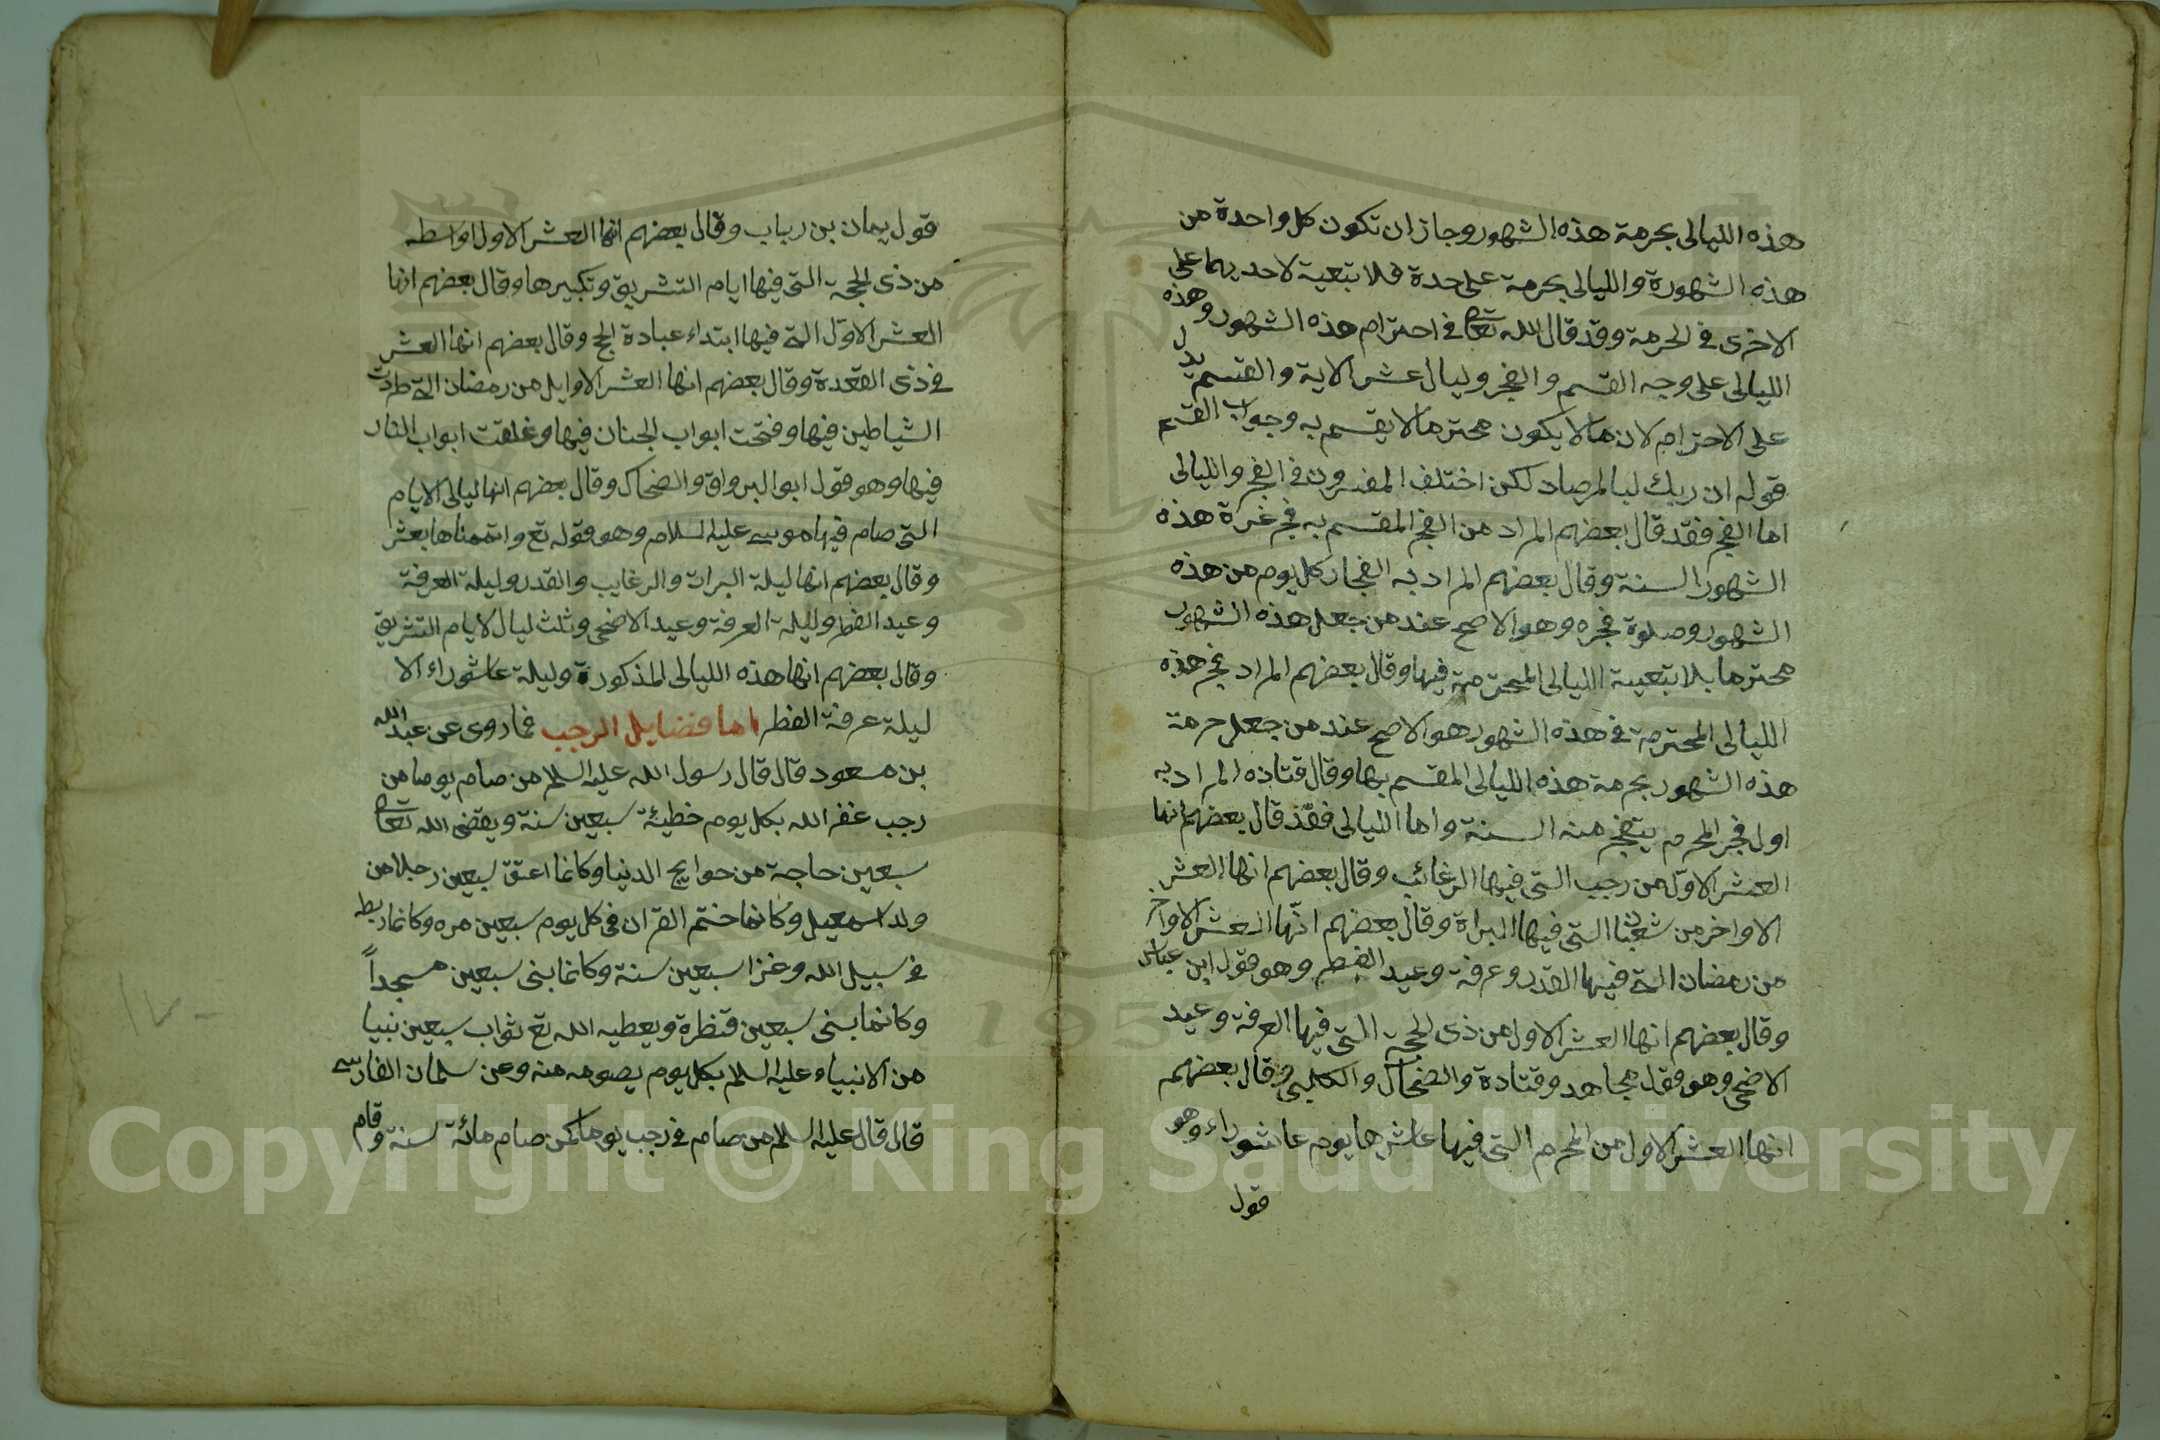 هذه الليالى بحرمة هذه الشهور وجاز ان تكون كل واحدة من
هذه الشهورة والليالى بحرمة على حدة فلا بتعية لاحديهما على
الاخرى فى الحرمة وقد قال الله تعالى فى احترام هذه الشهور وهذه
الليالى على وجه القسم والفجر وليال عشر الاية والقسم يدل
على الاحترام لان ما لا يكون محترما لا يقسم به وجواب القسم
قوله ان ربك لبالمرصاد لكن اختلف المفسرون فى الفجر والليالى
اما الفجر فقد قال بعضهم المراد من الفجر المقسم به فجر غرة هذه
الشهور السنة وقال بعضهم المراد به الفجار كل يوم من هذه
الشهور وصلوة فجره وهو الاصح عند من جعل هذه الشهور
محترما بلا بتعيية الليالى المحترمة فيها وقال بعضهم المراد بفجر هذه
الليالى المحترمة فى هذه الشهور هو الاصح عند من جعل حرمة
هذه الشهور بحرمة هذه الليالى المقسم بها وقال قتاده المراد به
اول فجر المحرم يتفجر منه السنة واما الليالى فقد قال بعضهم انها
العشر الاول من رجب التى فيها الرغائب وقال بعضهم انها العشر
الاواخر من شعبان التى فيها البراة وقال بعضهم انها العشر الاواخر
من رمضان التى فيها القدر وعرفة وعيد الفطر وهو قول ابن عباس
وقال بعضهم انها العشر الاول من ذى الحجة التى فيها العرفة وعيد
الاضحى وهو فقل مجاهد وقتادة والضحاك والكلبى وقال بعضهم
انها العشر الاول من المحرم التى فيها عاشرها يوم عاشوراء وهو
قول
قول يمان بن رباب وقال بعضهم انها العشر الاول اواسطه
من ذى الحجة التى فيها ايام التشريق وتكبيرها وقال بعضهم انها
العشر الاول التى فيها ابتداء عبادة الحج وقال بعضهم انها العشر
فى ذى القعدة وقال بعضهم انها العشر الاوايل من رمضان التى طردت
الشياطين فيها وفتحت ابواب الجنان فيها وغلقت ابواب النار
فيها وهو قول ابو البرواق والضحاك وقال بعضهم انها ليالى الايام
التى صام فيها موسى عليه السلام وهو قوله تع واتممناها بعشر
وقال بعضهم انها ليلة البرات والرغايب والقدر وليلة العرفة
وعيد الفطر وليلة العرفة وعيد الاضحى وثلث ليال لايام التشريق
وقال بعضهم انها هذه الليالى المذكورة وليلة عاشوراء الا
ليلة عرفة الفطر اما فضايل الرجب فما روى عن عبد الله
بن مسعود قال قال رسول الله عليه السلم من صام يوما من
رجب غفر الله بكل يوم خطيئة سبعين سنة ويقضى الله تعالى
سبعين حاجة من حوايج الدنيا وكانما اعتق سبعين رجلا من
ولد اسمعيل وكانما ختم القران فى كل يوم سبعين مره وكانما ربط
فى سبيل الله وغزا سبعين سنة وكانما بنى سبعين مسجداً
وكانما بنى سبعين قنظرة ويعطيه الله تع ثواب سبعين نبيا
من الانبياء عليه السلم بكل يوم يصومه منه وعن سلمان الفارسى
قال قال عليه السلم من صام فى رجب يوما كمن صام مائة سنة وقام
1957
Copyright © King Saud University